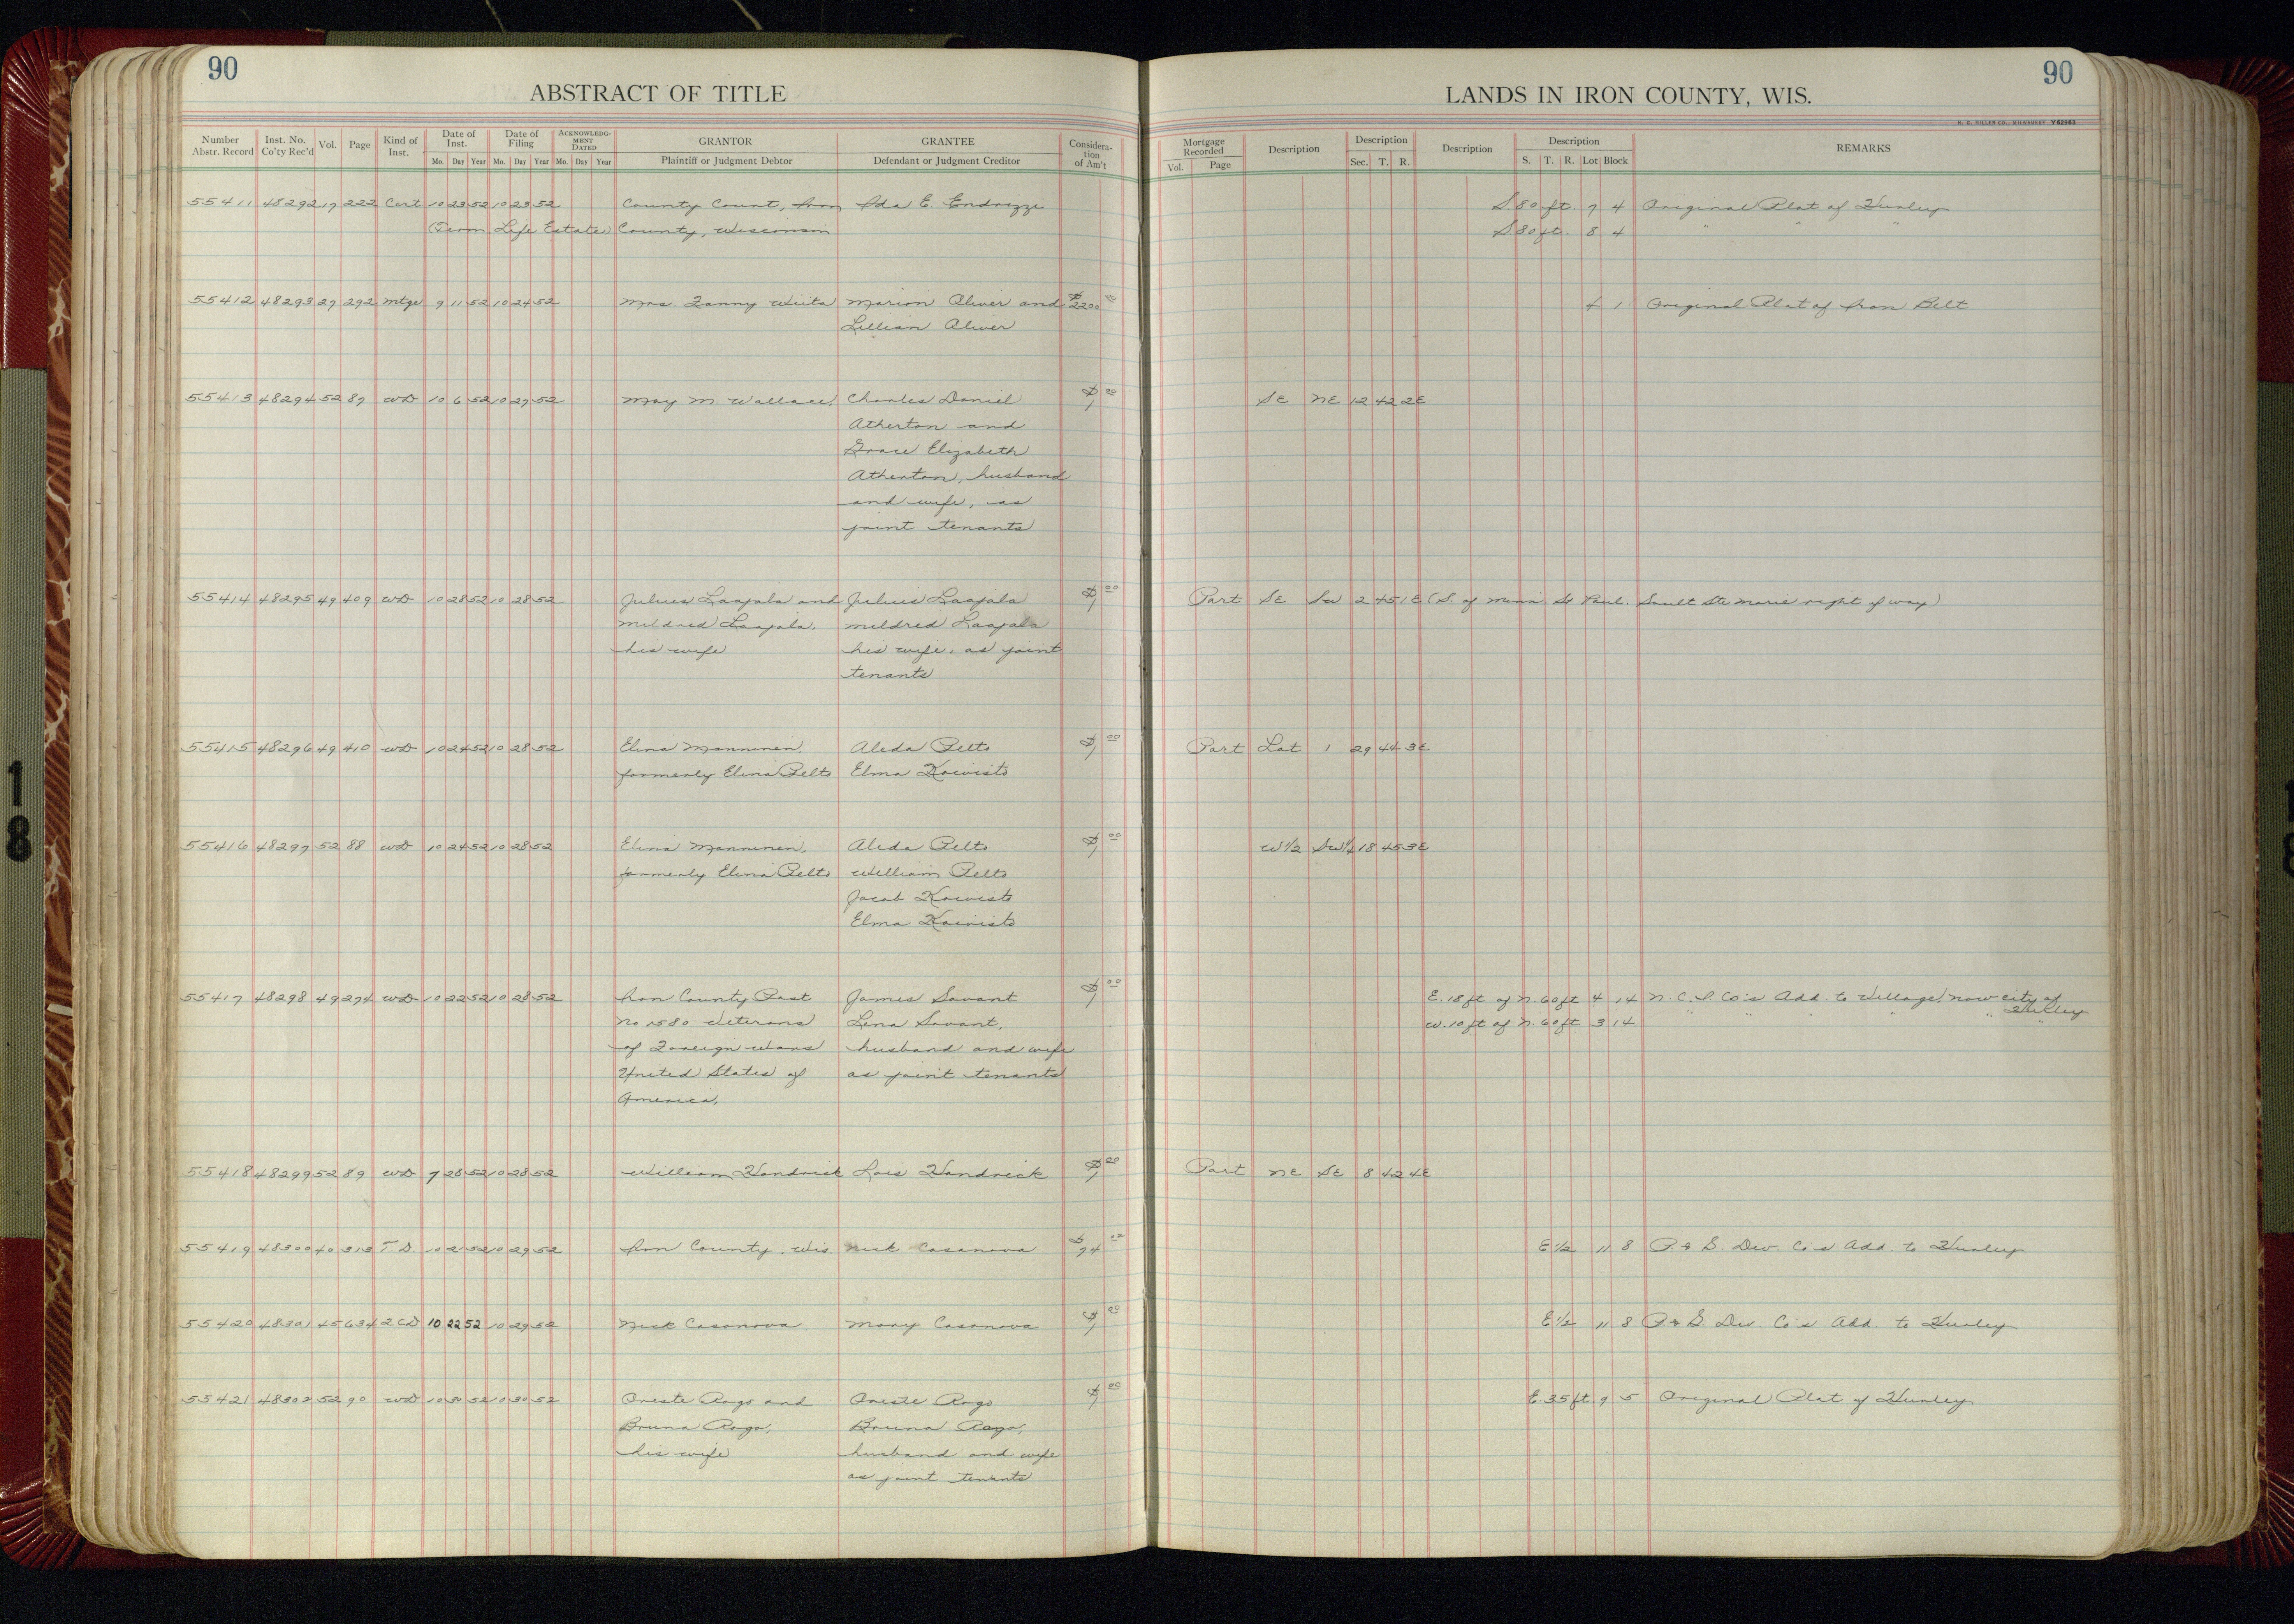 90
ABSTRACT OF TITLE
Number Abstr. Record | Inst. No. Co'ty Rec'd | Vol. | Page | Kind of Inst. | Date of Inst. Mo. Day Year | Date of Filing Mo. Day Year | ACKNOWLEDGMENT DATED Mo. Day Year | GRANTOR Plaintiff or Judgment Debtor | GRANTEE Defendant or Judgment Creditor | Consideration of Am't
90
LANDS IN IRON COUNTY, WIS.
H. C. MILLER CO., MILWAUKEE V82663
Mortgage Recorded Vol. Page | Description | Description Sec. T. R. | Description | Description S. T. R. Lot Block | REMARKS
55411 48292 17 222 Cert 10 23 52 10 23 52 County Court, Iron Ida E. Endrizzi S. 80 ft. 7 4 Original Plat of Hurley
(Term. Life Estate) County, Wisconsin S. 80 ft. 8 4 " " "
55412 48293 27 292 mtge 9 11 52 10 24 52 Mrs. Fanny Wiita Marion Oliver and $2200 00 4 1 Original Plat of Iron Belt
Lillian Oliver
55413 48294 52 87 WD 10 6 52 10 27 52 May M. Wallace, Charles Daniel $1 00 SE NE 12 42 2E
Atherton and
Grace Elizabeth
Atherton, husband
and wife, as
joint tenants
55414 48295 49 409 WD 10 28 52 10 28 52 Julius Laajala and Julius Laajala $1 00 Part SE SW 2 45 1E (S. of Minn. St Paul. Sault Ste Marie right of way)
Mildred Laajala, Mildred Laajala
his wife his wife, as joint
tenants
55415 48296 49 410 WD 10 24 52 10 28 52 Elina Manninen, Aleda Pelto $1 00 Part Lot 1 29 44 3E
formerly Elina Pelto Elma Koivisto
55416 48297 52 88 WD 10 24 52 10 28 52 Elina Manninen, Aleda Pelto $1 00 W 1/2 SW 1/4 18 45 3E
formerly Elina Pelto William Pelto
Jacob Koivisto
Elma Koivisto
55417 48298 49 274 WD 10 22 52 10 28 52 Iron County Post James Savant $1 00 E. 18 ft of N. 60 ft 4 14 N. C. I. Co's Add. to Village, now city of Hurley
No 1580 Veterans Lena Savant, W. 10 ft of N. 60 ft 3 14 " " " "
of Foreign Wars husband and wife
United States of as joint tenants
America,
55418 48299 52 89 WD 7 28 52 10 28 52 William Hendrick Lois Hendrick $1 00 Part NE SE 8 42 4E
55419 48300 40 313 T.D. 10 2 52 10 29 52 Iron County, Wis. Nick Casanova $74 02 E 1/2 11 8 P. & S. Dev. Co's Add. to Hurley
55420 48301 45 634 2CD 10 22 52 10 29 52 Nick Casanova Mary Casanova $1 00 E 1/2 11 8 P. & S. Dev. Co's Add. to Hurley
55421 48302 52 90 WD 10 30 52 10 30 52 Oreste Rogo and Oreste Rogo $1 00 E. 35 ft. 9 5 Original Plat of Hurley
Bruna Rogo, Bruna Rogo,
his wife husband and wife
as joint tenants
18